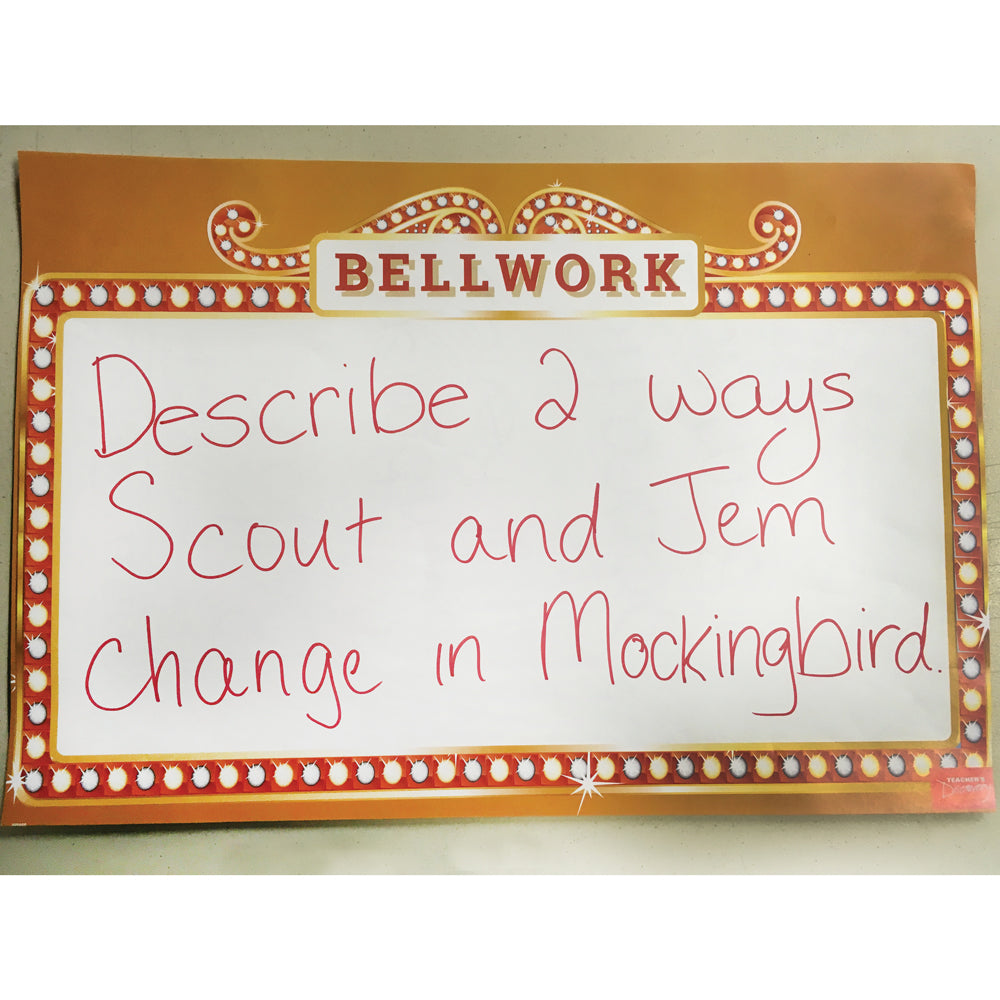 BELLWORK
Describe 2 ways
Scout and Jem
change in Mockingbird.
TEACHER'S
Discovery